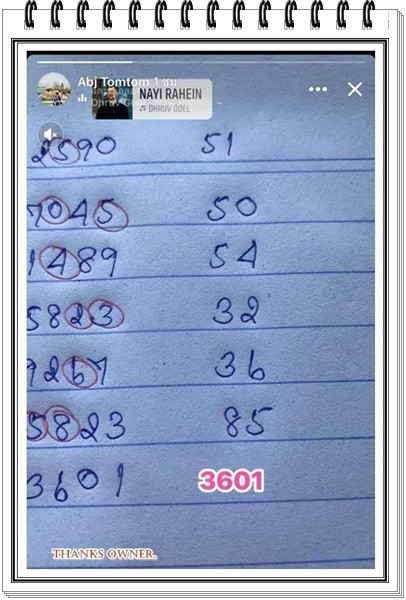 Abj Tomtom 1 ชม.
NAYI RAHEIN
DHRUV GOEL
2590 51
7045 50
1489 54
5823 32
9267 36
5823 85
3601
3601
THANKS OWNER.